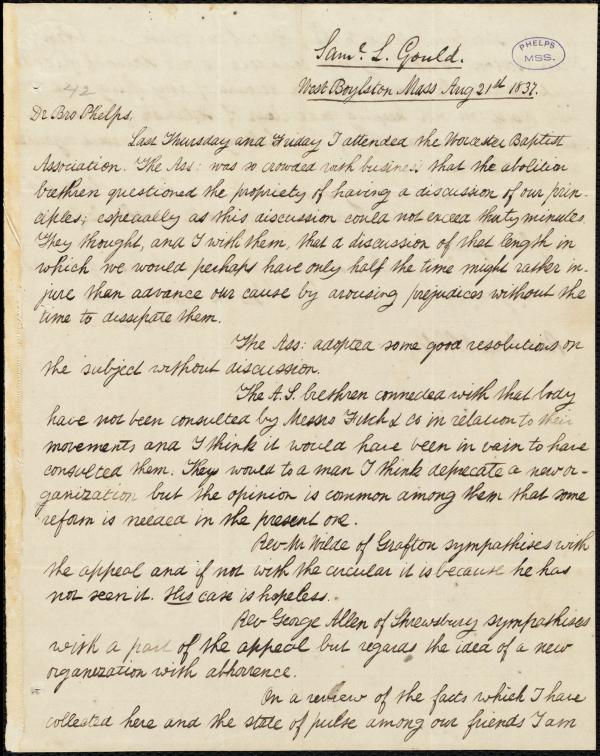 Saml. L. Gould.
PHELPS
MSS.
West Boylston Mass Aug 21st 1837.
42
Dr Bro Phelps,
Last Thursday and Friday I attended the Worcester Baptist
Association. The Ass: was so crowded with business that the abolition
brethren questioned the propriety of having a discussion of our prin-
ciples; especially as this discussion could not exceed thirty minutes.
They thought, and I with them, that a discussion of that length in
which we would perhaps have only half the time might rather in-
jure than advance our cause by arousing prejudices without the
time to dissipate them.
The Ass: adopted some good resolutions on
the subject without discussion.
The A.S. brethren connected with that body
have not been consulted by Messrs Fitch & Co in relation to their
movements and I think it would have been in vain to have
consulted them. They would to a man I think deprecate a new or-
ganization but the opinion is common among them that some
reform is needed in the present one.
Rev Mr Wilde of Grafton sympathises with
the appeal and if not with the circular it is because he has
not seen it. His case is hopeless.
Rev George Allen of Shrewsbury sympathises
with a part of the appeal but regards the idea of a new
organization with abhorrence.
On a review of the facts which I have
collected here and the state of pulse among our friends I am